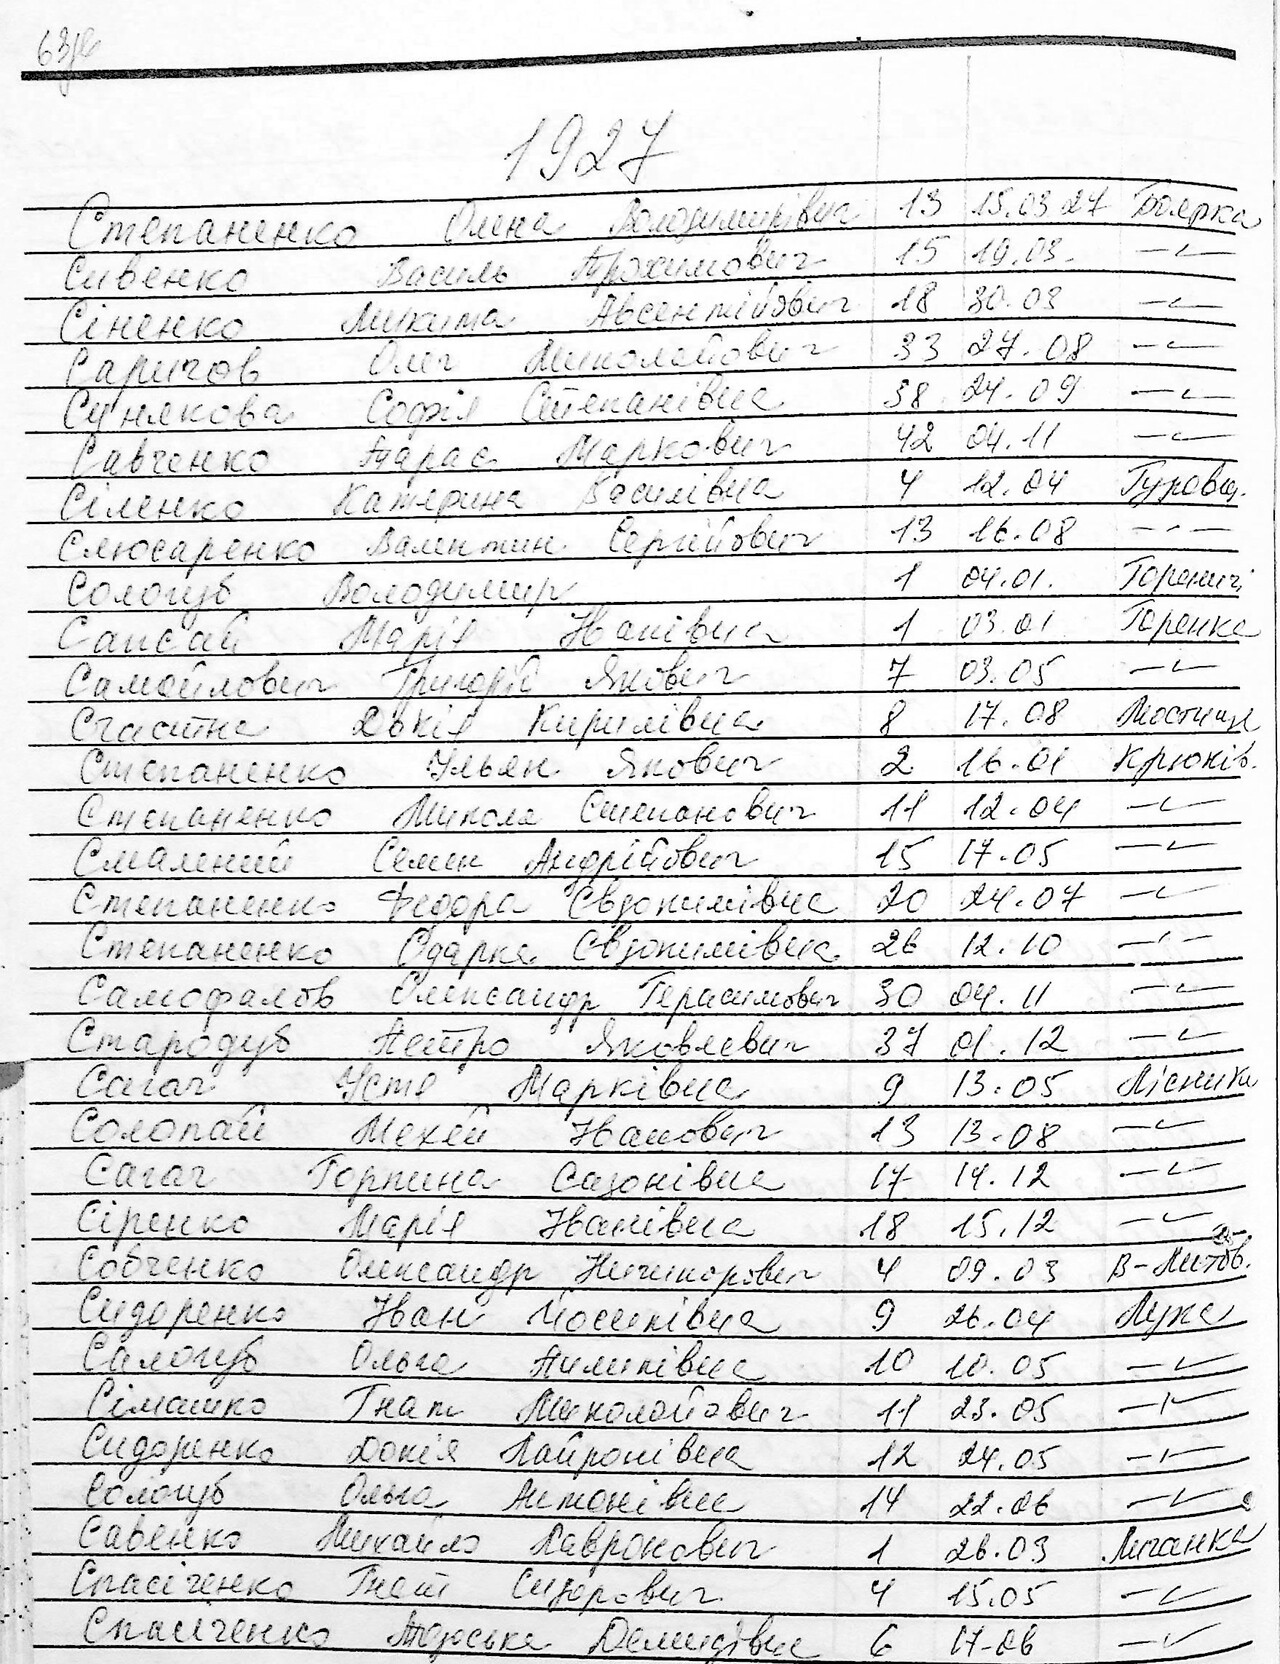 1927
Степаненко Олена Володимирівич 13 15.03 27 Боярка
Сивенко Василь Трохимович 15 19.03. —〃—
Сіненко Микита Авсентійович 18 30.03 —〃—
Саричов Олег Миколайович 33 27.08 —〃—
Сунякова Софія Степанівна 38 24.09 —〃—
Савченко Тарас Маркович 42 04.11 —〃—
Сіленко Катерина Василівна 4 12.04 Гуровщ.
Слюсаренко Валентин Сергійович 13 16.08 —〃—
Сологуб Володимир 1 04.01. Гореничі
Сапсай Марія Іванівна 1 03.01 Горенка
Самойлович Григорій Якович 7 03.05 —〃—
Счастна Докія Кирилівна 8 17.08 Мостище
Степаненко Ульян Якович 2 16.01 Крюків.
Степаненко Микола Степанович 11 12.04 —〃—
Смалений Семен Андрійович 15 17.05 —〃—
Степаненко Федора Євдокимівна 20 24.07 —〃—
Степаненко Одарка Євдокимівна 26 12.10 —〃—
Самофалов Олександр Герасимович 30 04.11 —〃—
Стародуб Петро Яковлевич 37 01.12 —〃—
Сагач Устя Марківна 9 13.05 Лісники
Солопай Мехей Іванович 13 13.08 —〃—
Сагач Горпина Сазонівна 17 14.12 —〃—
Сіренко Марія Іванівна 18 15.12 —〃—
Совченко Олександр Ничипорович 4 09.03 В-Литов.
Сидоренко Іван Йосипівна 9 26.04 Лука
Салогуб Ольга Пилипівна 10 10.05 —〃—
Сімашко Гнат Миколойович 11 23.05 —〃—
Сидоренко Докія Лавронівна 12 24.05 —〃—
Сологуб Ольга Антонівна 14 22.06 —〃—
Савенко Михайло Лавронович 1 26.03 Личанка
Спасіченко Гнат Сидорович 4 15.05 —〃—
Спасіченко Демидівна 6 17.06 —〃—